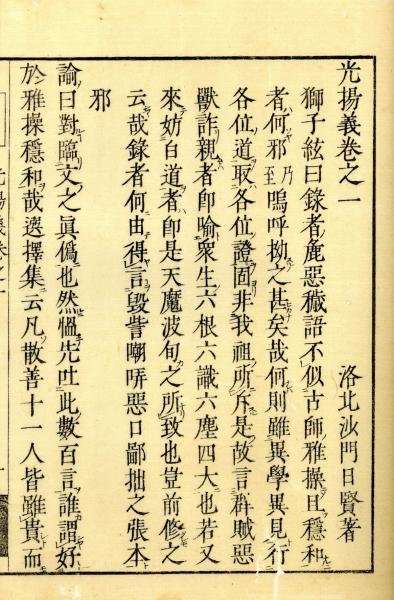 光揚義卷之一
洛北沙門日賢著
獅子絃曰錄者麁惡穢語不似古師雅操且穩和
者何邪乃至嗚呼拗之甚矣哉何則雖異學異見行
各位道取各位證固非我祖所斥是故言群賊惡
獸詐親者卽喻衆生六根六識六塵四大也若又
來妨白道者卽是天魔波旬之所致也豈前修之
云哉錄者何由得言毀訾嘲哢惡口鄙拙之張本
邪
諭曰對臨文之眞僞也然慍先吐此數百言誰謂好
於雅操穩和哉選擇集云凡散善十一人皆雖貴而